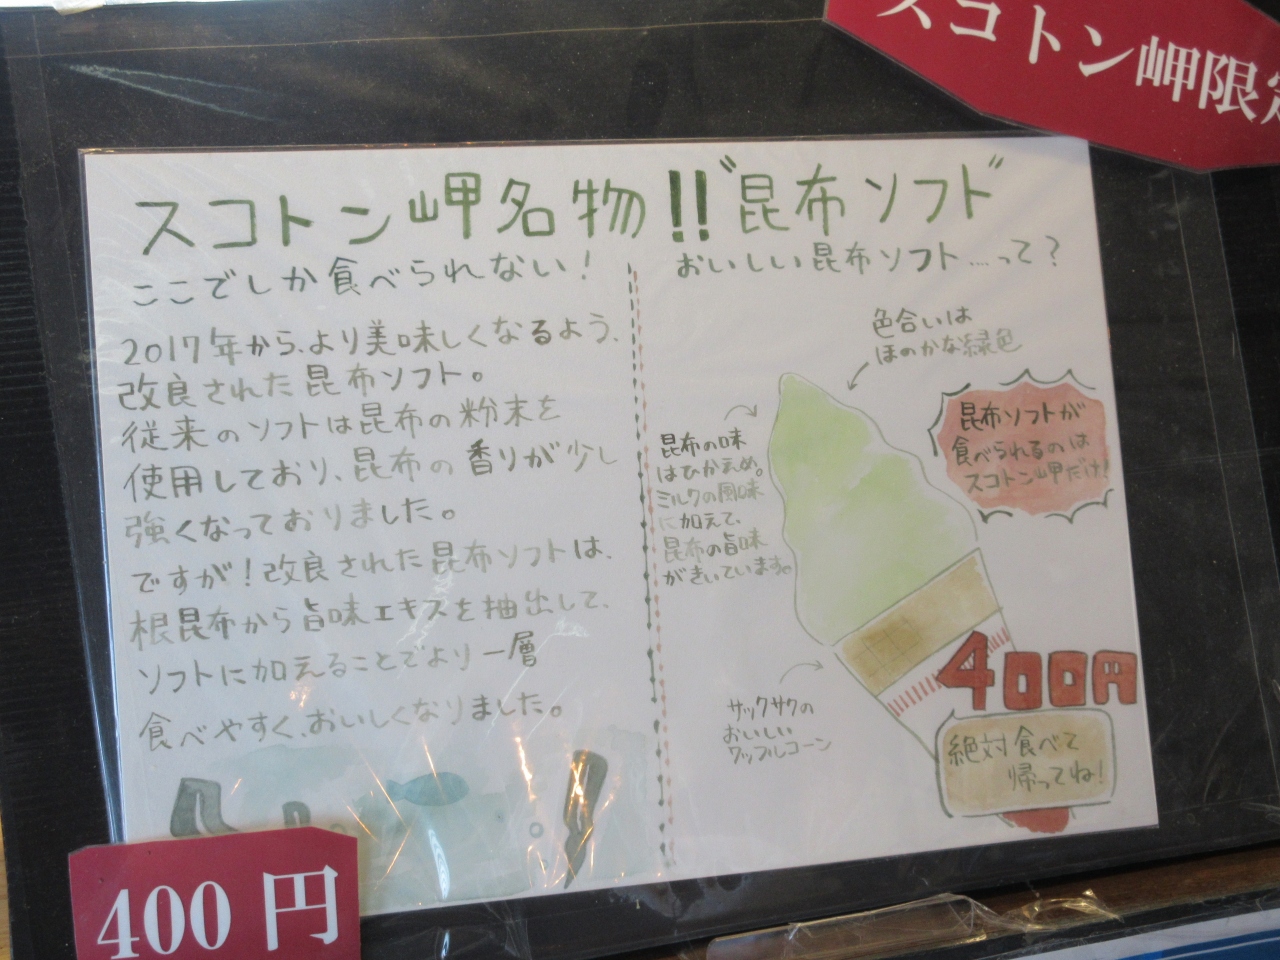 スコトン岬限定
スコトン岬名物!!"昆布ソフト"
ここでしか食べられない!
2017年から、より美味しくなるよう、
改良された昆布ソフト。
従来のソフトは昆布の粉末を
使用しており、昆布の香りが少し
強くなっておりました。
ですが!改良された昆布ソフトは、
根昆布から旨味エキスを抽出して、
ソフトに加えることでより一層
食べやすく、おいしくなりました。
おいしい昆布ソフト……って?
色合いは
ほのかな緑色
昆布の味
はひかえめ。
ミルクの風味
に加えて、
昆布の旨味
がきいています。
昆布ソフトが
食べられるのは
スコトン岬だけ!
サックサクの
おいしい
ワッフルコーン
400円
絶対食べて
帰ってね!
400円